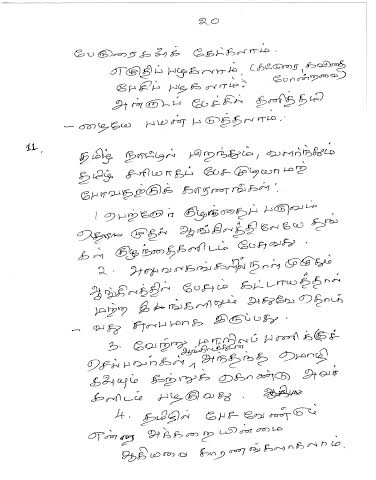 20
பேருரைகளைக் கேட்கலாம்.
எழுதிப் பழகலாம் (கட்டுரை, கவிதை
பேசிப் பழகலாம். போன்றவை)
அன்றாடப் பேச்சில் தனித்தமி
- ழையே பயன் படுத்தலாம்.
11. தமிழ் நாட்டில் பிறந்தும், வளர்ந்தும்
தமிழ் சரியாகப் பேச முடியாமற்
போவதற்குக் காரணங்கள்:
1 பெற்றோர் குழந்தைப் பருவம்
முதல் ஆங்கிலத்திலேயே தங்
கள் குழந்தைகளிடம் பேசுவது.
2. அலுவலகங்களில் நாள் முழுதும்
ஆங்கிலத்தில் பேசும் கட்டாயத்தால்
மற்ற இடங்களிலும் அதுவே தொடர்
- வது சுலபமாக இருப்பது.
3. வேற்று மாநிலப் பணிக்குச்
செல்பவர்கள், அந்தந்த மொழி
களையும் கற்றுக் கொண்டு அவர்
களிடம் பழகுவது.
4. தமிழில் பேச வேண்டும்
என்ற அக்கறையின்மை
ஆகியவை காரணங்களாகலாம்.